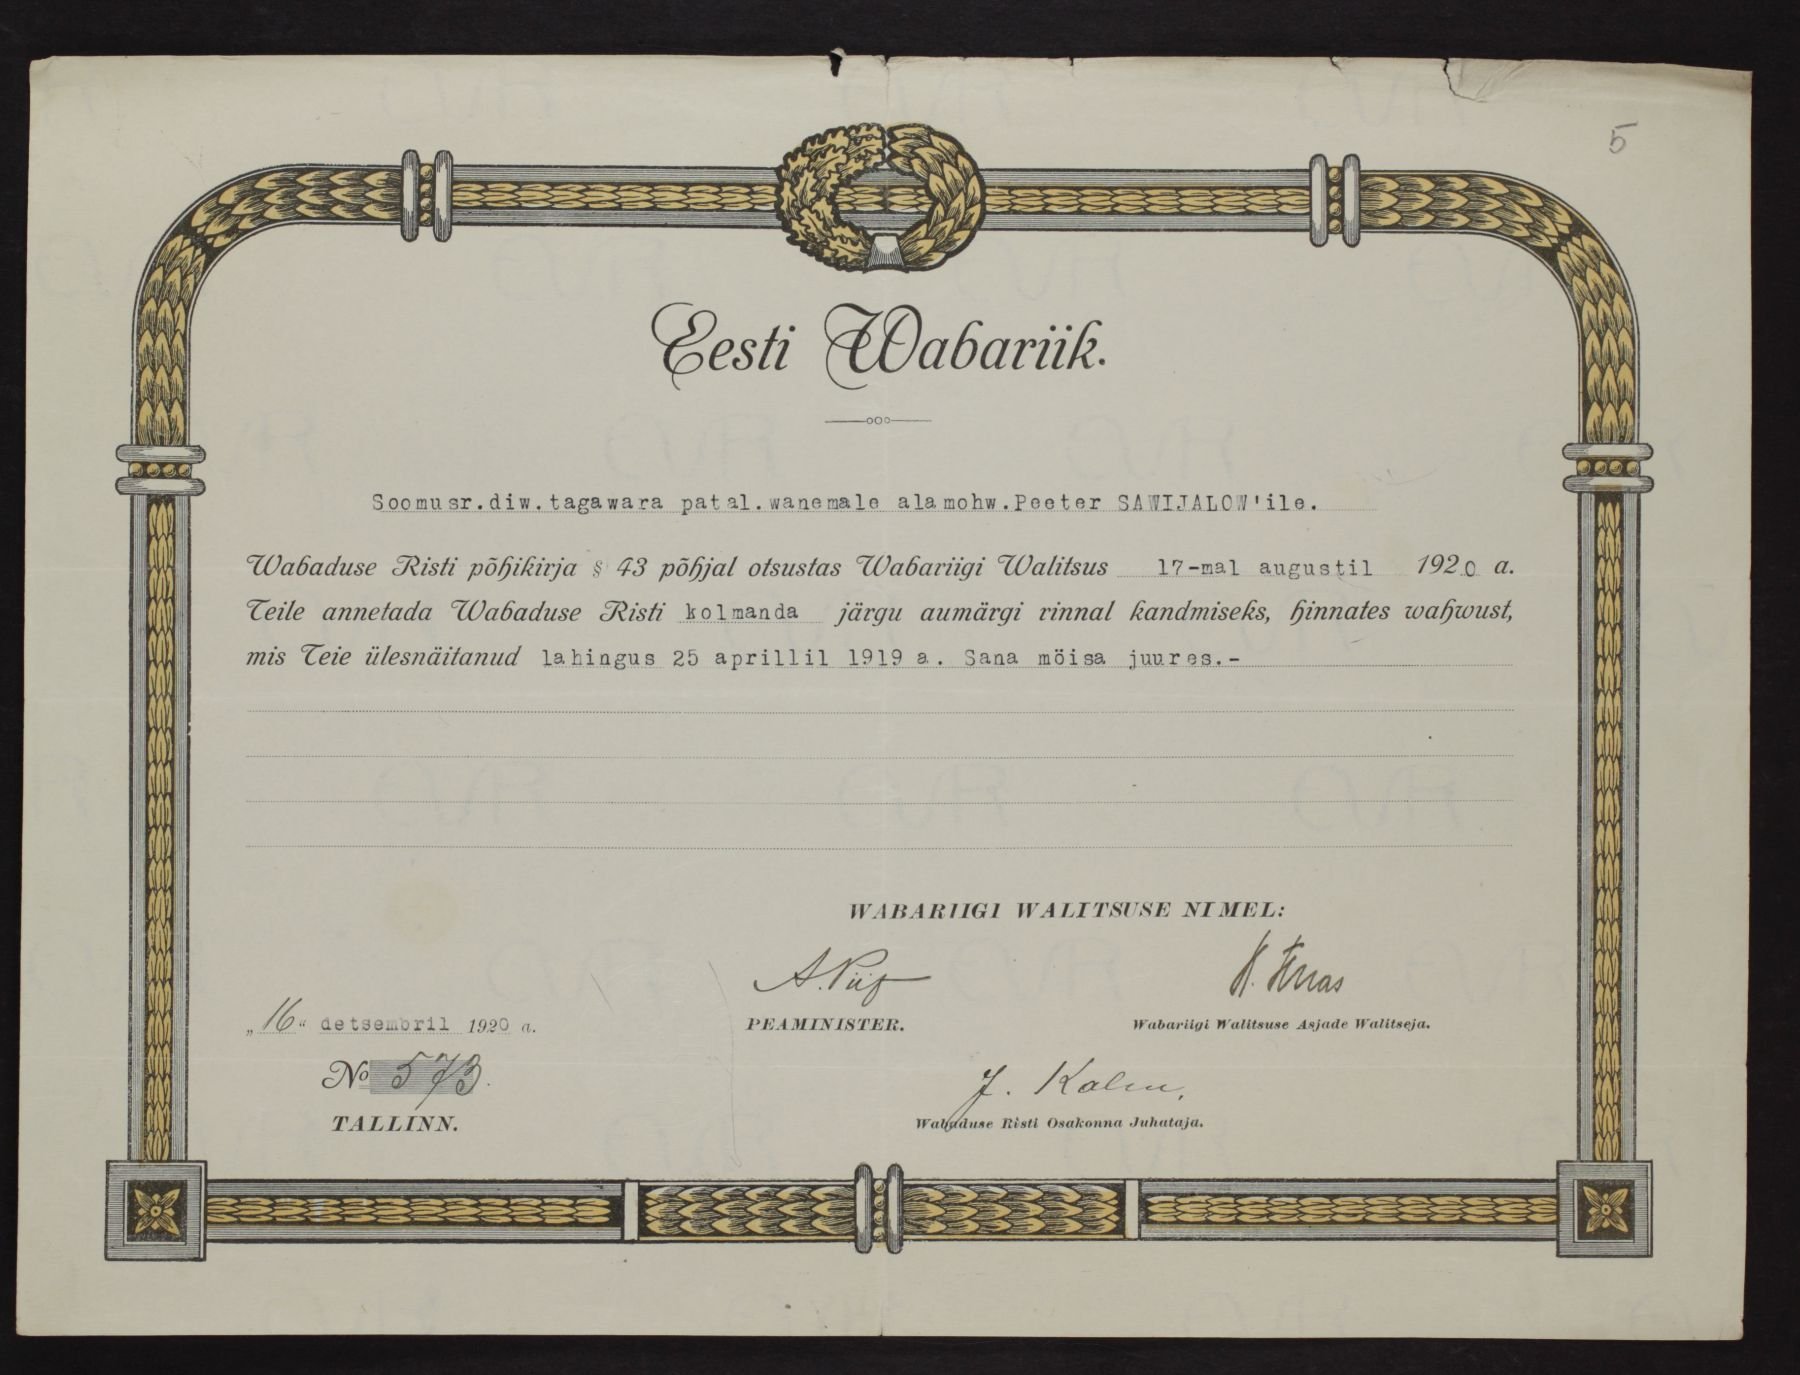 5
Eesti Wabariik.
Soomusr.diw.tagawara patal.wanemale alamohw.Peeter SAWIJALOW'ile.
Wabaduse Risti põhikirja § 43 põhjal otsustas Wabariigi Walitsus 17-mal augustil 1920 a.
Teile annetada Wabaduse Risti kolmanda järgu aumärgi rinnal kandmiseks, hinnates wahwust,
mis Teie ülesnäitanud lahingus 25 aprillil 1919 a. Sana möisa juures.-
WABARIIGI WALITSUSE NIMEL:
A. Piip
„16“ detsembril 1920 a.
PEAMINISTER.
Wabariigi Walitsuse Asjade Walitseja.
No 573.
J. Kalm,
TALLINN.
Wabaduse Risti Osakonna Juhataja.